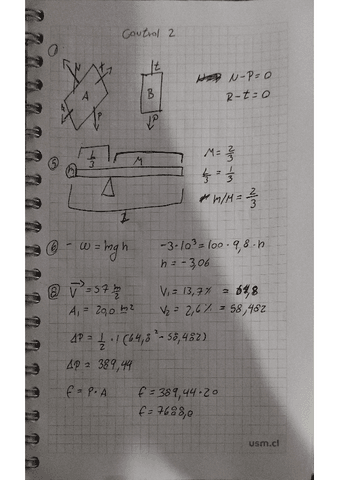 Control 2
①
N t
A
r P
t
B
P
N-P=0
R-t=0
⑤
L/3 M
m
1
M = 2/3
L/3 = 1/3
m/M = 2/3
⑥ - W = mgh
-3·10³ = 100·9,8·h
h = -3,06
⑧ V = 57 m/s
V₁ = 13,7% = 64,8
A₁ = 20,0 m²
V₂ = 2,6% = 58,482
ΔP = 1/2 · 1 (64,8² - 58,482)
ΔP = 389,44
f = P·A
f = 389,44·20
f = 7688,0
usm.cl